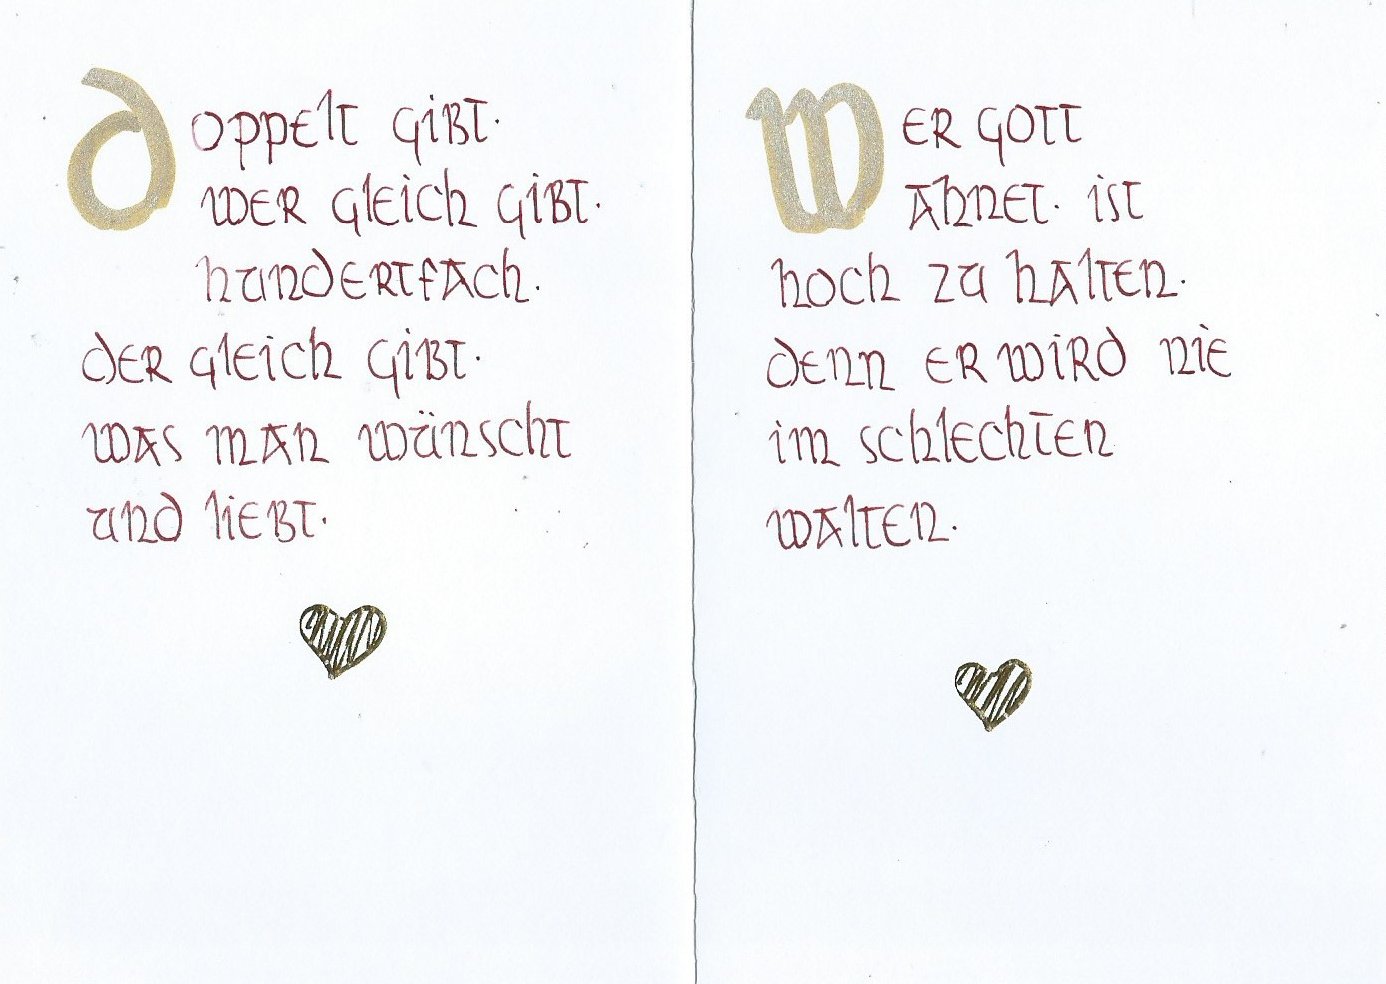 Doppelt gibt·
wer gleich gibt·
hundertfach·
der gleich gibt·
was man wünscht
und liebt·
Wer Gott
ahnet· ist
hoch zu halten·
denn er wird nie
im schlechten
walten·